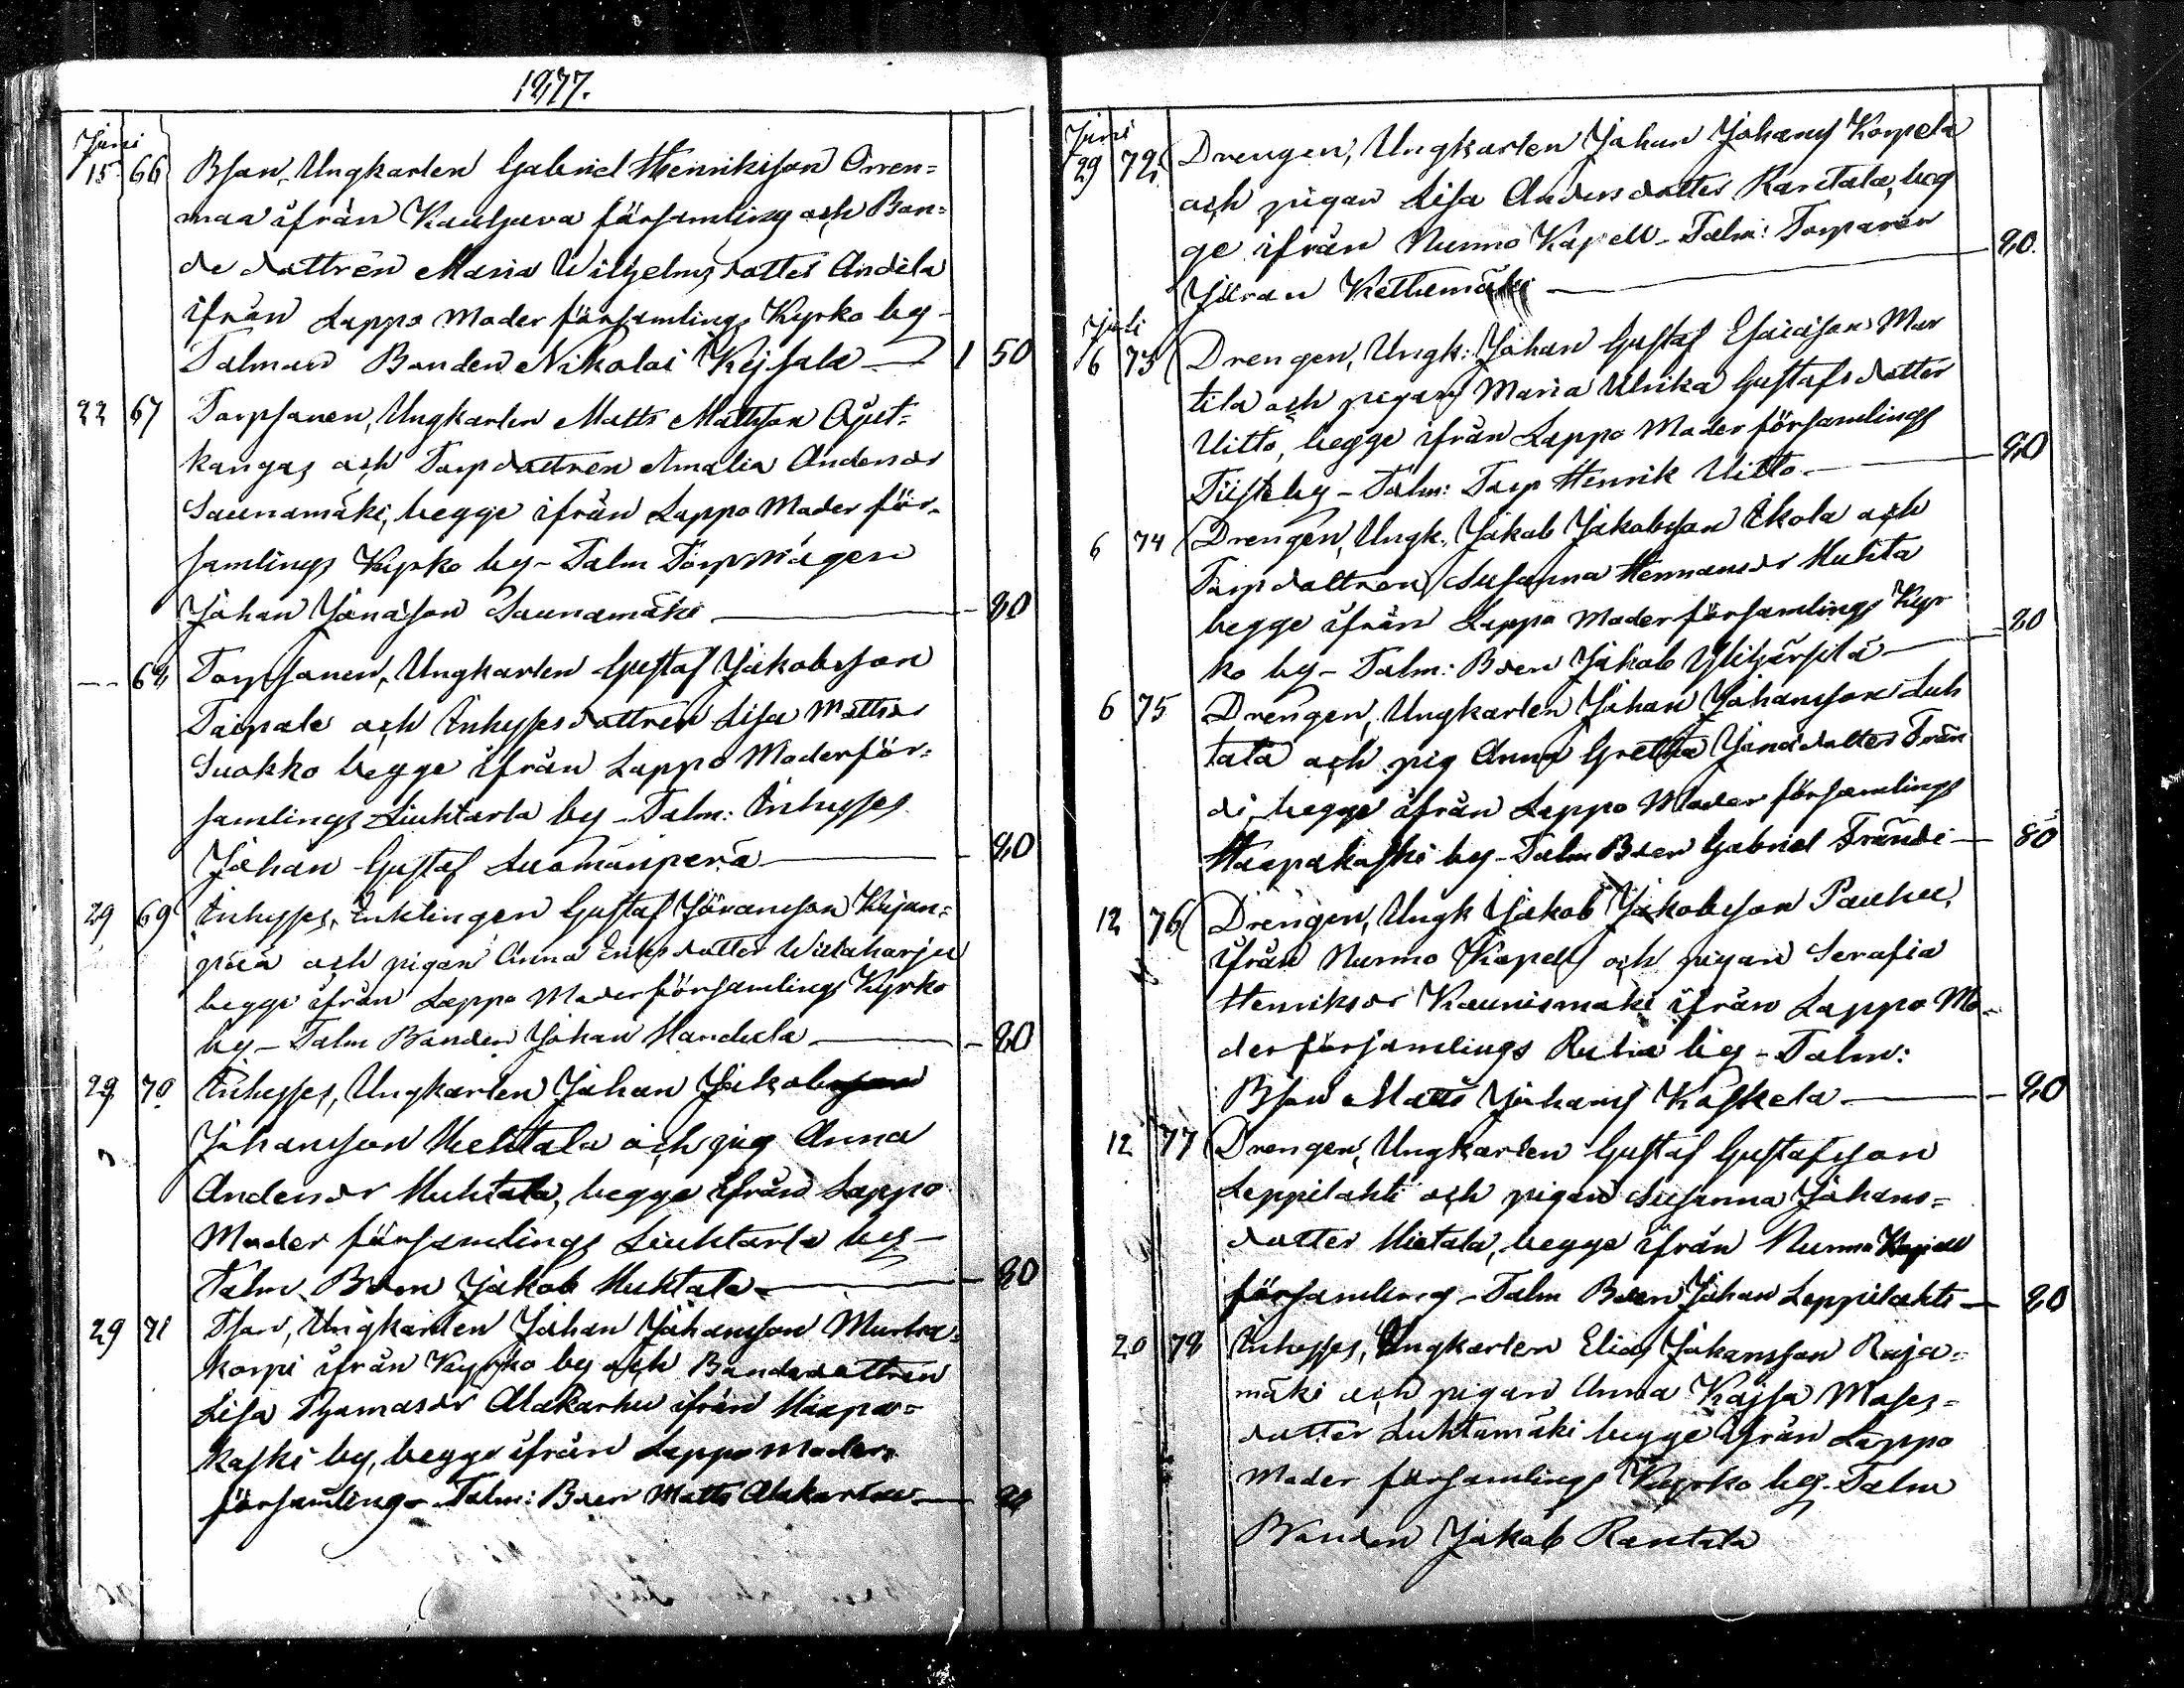 1877.
Juni
15 66 Bson, Ungkarlen Gabriel Henriksson Orren=
maa ifrån Kauhava församling och Bon=
de dottren Maria Wilhelms dotter Andela
ifrån Lappo Moder församlings Kyrko by -
Talman Bonden Nikolai Kejsala — 1 50
22 67 Torpsonen, Ungkarlen Matts Mattsson
kangas och Torpdottren Amalia Andersdr
Saunamäki, begge ifrån Lappo Moder för=
samlings Kyrko by - Talm Torpmågen
Johan Jonasson Saunamäki — 80
- - 68 Torpsonen, Ungkarlen Gustaf Jakobsson
Taipale och Inhyses dottren Lisa Mattsdr
Suokko begge ifrån Lappo Moderför=
samlings Liuhtarla by - Talm: Inhyses
Johan Gustaf Luomanperä — 80
29 69 Inhyses, Enklingen Gustaf Göransson
och pigan Anna Eriks dotter Wiitaharju
begge ifrån Lappo Moderförsamlings Kyrko
by - Talm Bonden Johan Mandula — 80
29 70 Inhyses, Ungkarlen Johan Jakobsson
Johansson Huhtala och pig Anna
Andersdr Huhtala, begge ifrån Lappo
Moder församlings Liuhtarla by -
Talm Bden Jakob Huhtala — 80
29 71 Tson, Ungkarlen Johan Johansson Murto=
korpi ifrån Kyrko by och Bondedottren
Lisa Thomasdr Alakarhu ifrån Haapa=
koski by, begge ifrån Lappo Moder
församling - Talm: Bden Matts Alakarhu — 80
Juni
29 72 Drengen, Ungkarlen Johan Johans Korpela
och pigan Lisa Anders dotter Rantala, beg
ge ifrån Nurmo Kapell - Talm: Torparen
Göran Ketunmäki — 80.
Juli
6 73 Drengen, Ungk: Johan Gustaf Esaiasson Mar
tila och pigan Maria Ulrika Gustafs dotter
Uitto, begge ifrån Lappo Moder församlings
Tiistenby - Talm: Torp Henrik Uitto - 80
6 74 Drengen, Ungk. Jakob Jakobsson Ekola och
Torpdottren Susanna Hermansdr Huhta
begge ifrån Lappo Moder församlings Kyr
ko by - Talm: Bden Jakob Ylihärsilä — 80
6 75 Drengen, Ungkarlen Johan Johansson Luh
tala och pig Anna Gretha Jonasdotter Frän
di, begge ifrån Lappo Moder församlings
Haapakoski by - Talm Bden Gabriel Frändi — 80
12 76 Drengen, Ungk Jakob Jakobsson Pouhu,
ifrån Nurmo Kapell och pigan Serafia
Henriksdr Kaunismäki ifrån Lappo Mo=
derförsamlings Ruha by - Talm:
Bson Matts Johans Koskela — 80
12 77 Drengen, Ungkarlen Gustaf Gustafsson
Leppilahti och pigan Susanna Johans=
dotter Hietala, begge ifrån Nurmo Kapell
församling - Talm Bden Johan Leppilahti — 80
20 78 Inhyses, Ungkarlen Elias Johansson Raja=
mäki och pigan Anna Kajsa Moses=
dotter Luhtamäki begge ifrån Lappo
Moder församlings Kyrko by. Talm
Bonden Jakob Rantala